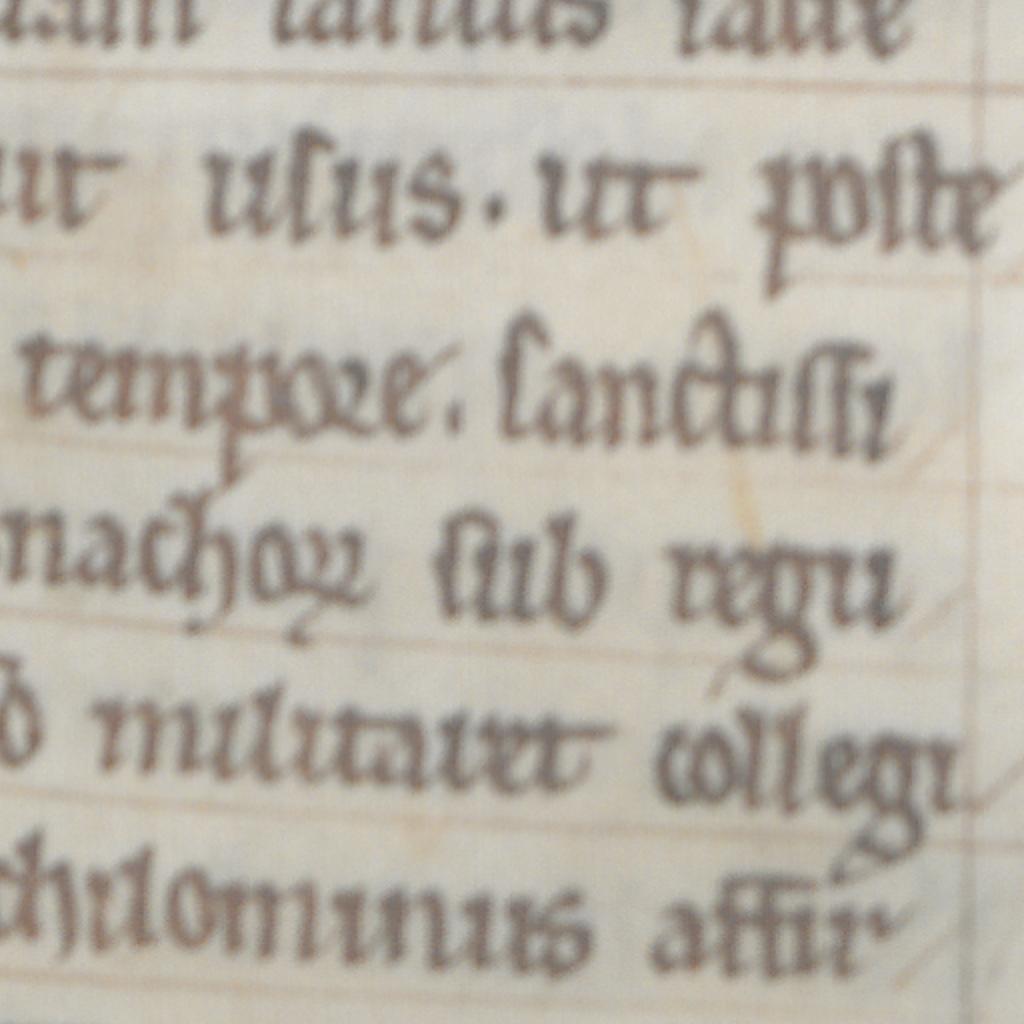 ut usus. ut poste
tempore. sanctissi
nachoꝝ sub regu
militaret collegi
chilominus affir